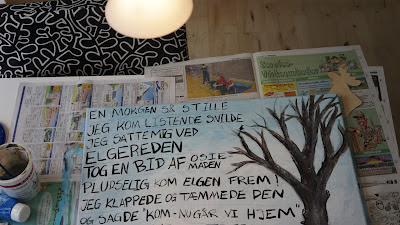 EN MORGEN SÅ STILLE
JEG KOM LISTENDE SNILDE
JEG SATTE MIG VED
ELGEREDEN
TOG EN BID AF OSTE
MADEN
PLUDSELIG KOM ELGEN FREM!
JEG KLAPPEDE OG TÆMMEDE DEN
OG SAGDE "KOM-NU GÅR VI HJEM"